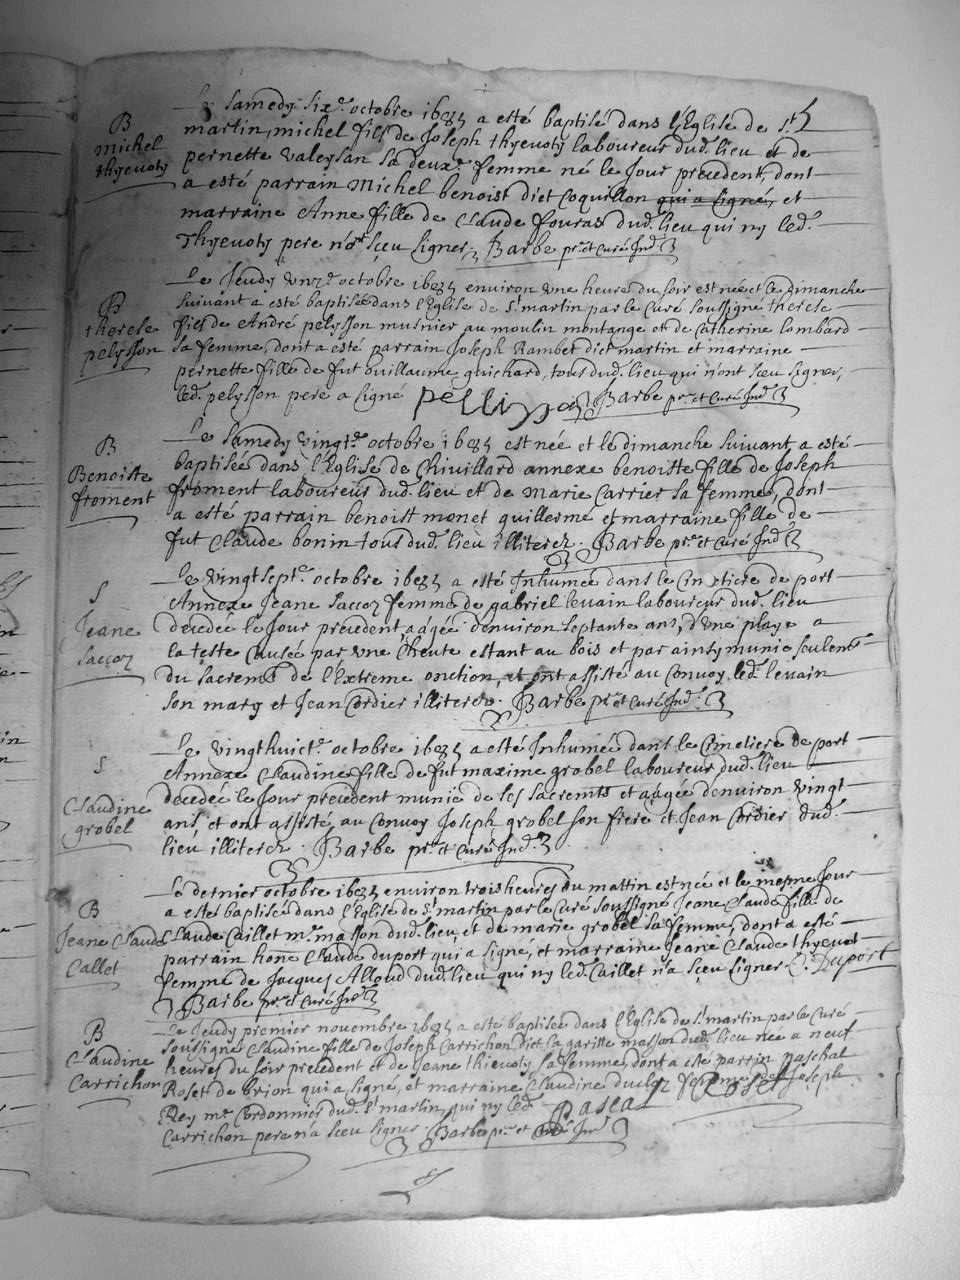 B
michel
thyevoty
Le samedy six.e octobre 1685 a esté baptisé dans l'Eglise de St
martin, michel fils de Joseph thyevoty laboureur dud. lieu et de
pernette valeysan sa deux.e femme né le Jour precedent, dont
a esté parrain Michel benoist dict Coquillon qui a signé, et
marraine Anne fille de Claude fouras dud. lieu qui ny led.
Thyevoty pere n'ont sçeu signer; Barbe pr. et Curé Ind.
B
therese
pelysson
Le Jeudy unz.e octobre 1685 environ une heure du soir est née et le dimanche
suivant a esté baptisée dans l'Eglise de St martin par le Curé soussigné therese
fies de André pelysson musnier au moulin montange et de Catherine lombard
sa femme, dont a esté parrain Joseph Rambet dict martin et marraine
pernette fille de fut Guillaume guichard, tous dud. lieu qui n'ont sceu signer,
led. pelysson pere a signé pellisson Barbe pr. et Curé Ind.
B
Benoiste
froment
Le Samedy vingt.e octobre 1685 est née et le dimanche suivant a esté
baptisée dans l'Eglise de Chivillard annexe benoiste fille de Joseph
froment laboureur dud. lieu et de marie Carrier sa femme, dont
a esté parrain benoist monet guillerme et marraine fille de
fut Claude bonin tous dud. lieu illiterez. Barbe pr. et Curé Ind.
S
Jeane
Saccoz
Le vingtsept.e octobre 1685 a esté Inhumée dans le Cimetiere de port
Annexe Jeane Saccoz femme de gabriel levain laboureur dud. lieu
decedée le Jour precedent, aagée d'environ septante ans, d'une playe a
la teste Causée par une Cheute estant au bois et par ainsy munie seulemt
du sacremt de l'Extreme onction, et ont assisté au Convoy led. levain
son mary et Jean Cordier illiterez. Barbe pr. et Curé Ind.
S
Claudine
grobel
Le vingthuict.e octobre 1685 a esté Inhumée dans le Cimetiere de port
Annexe Claudine fille de fut maxime grobel laboureur dud. lieu
decedée le Jour precedent munie de ses sacremts et aagée d'environ vingt
ans, et ont assisté au Convoy Joseph grobel son frere et Jean Cordier dud.
lieu illiterez. Barbe pr. et Curé Ind.
B
Jeane Claude
Callet
Le dernier octobre 1685 environ trois heures du mattin est née et le mesme Jour
a esté baptisée dans l'Eglise de St martin par le Curé soussigné Jeane Claude fille de
Claude Caillet m.e masson dud. lieu, et de marie grobel sa femme, dont a esté
parrain hone Claude duport qui a signé, et marraine Jeane Claude thyevot
femme de Jacques Alloud dud. lieu qui ny led. Caillet n'a sceu signer. C. Duport
Barbe pr. et Curé Ind.
B
Claudine
Carrichon
Le Jeudy premier novembre 1685 a esté baptisée dans l'Eglise de St martin par le Curé
soussigné Claudine fille de Joseph Carrichon dict la garille masson dud. lieu née a neuf
heures du soir precedent et de Jeane thievoty sa femme, dont a esté parrin paschal
Rosett de brion qui a signé, et marraine Claudine femme de Joseph
Rey m.e Cordonnier dud. St martin, qui ny led. Pascal Roset
Carrichon pere n'a sceu signer Barbe pr. et Curé Ind.